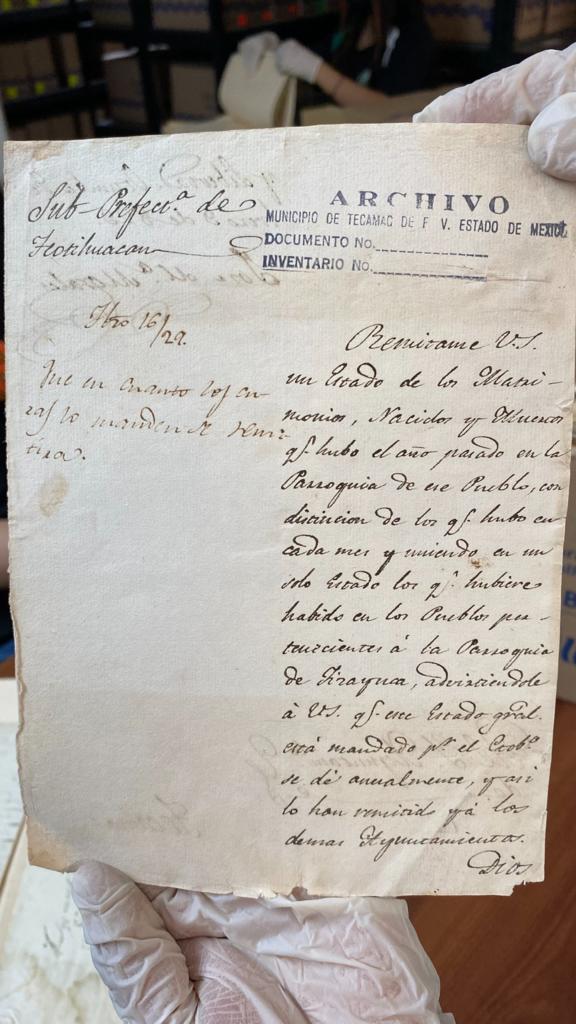 Sub-Prefect.ª de
Teotihuacan
ARCHIVO
MUNICIPIO DE TECAMAC DE F V. ESTADO DE MEXICO
DOCUMENTO NO.
INVENTARIO NO.
16/22.
Que en cuanto los cu-
ras lo manden se remi-
tira.
Remitame V.S.
un Estado de los Matri-
monios, Nacidos y Muertos
q.e hubo el año pasado en la
Parroquia de ese Pueblo, con
distincion de los q.e hubo en
cada mes y uniendo en un
solo Estado los q.e hubiere
habido en los Pueblos per-
tenecientes á la Parroquia
de Tizayuca, advirtiendole
á VS. q.e este Estado gral.
está mandado p.r el Gob.º
se dé anualmente, y asi
lo han remitido yá los
demas Ayuntamientos.
Dios